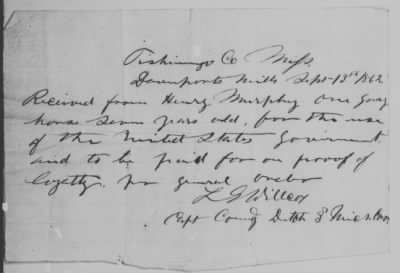 Tishimingo Co Miss.
Davenports Mills Sept. 13th 1862
Received from Henry Murphy One gray
horse Seven years old, for the use
of the United States Goverment
and to be paid for on proof of
loyalty. per general order
L G Willcox
Capt Comdg Detch 3d Mich. Cav.